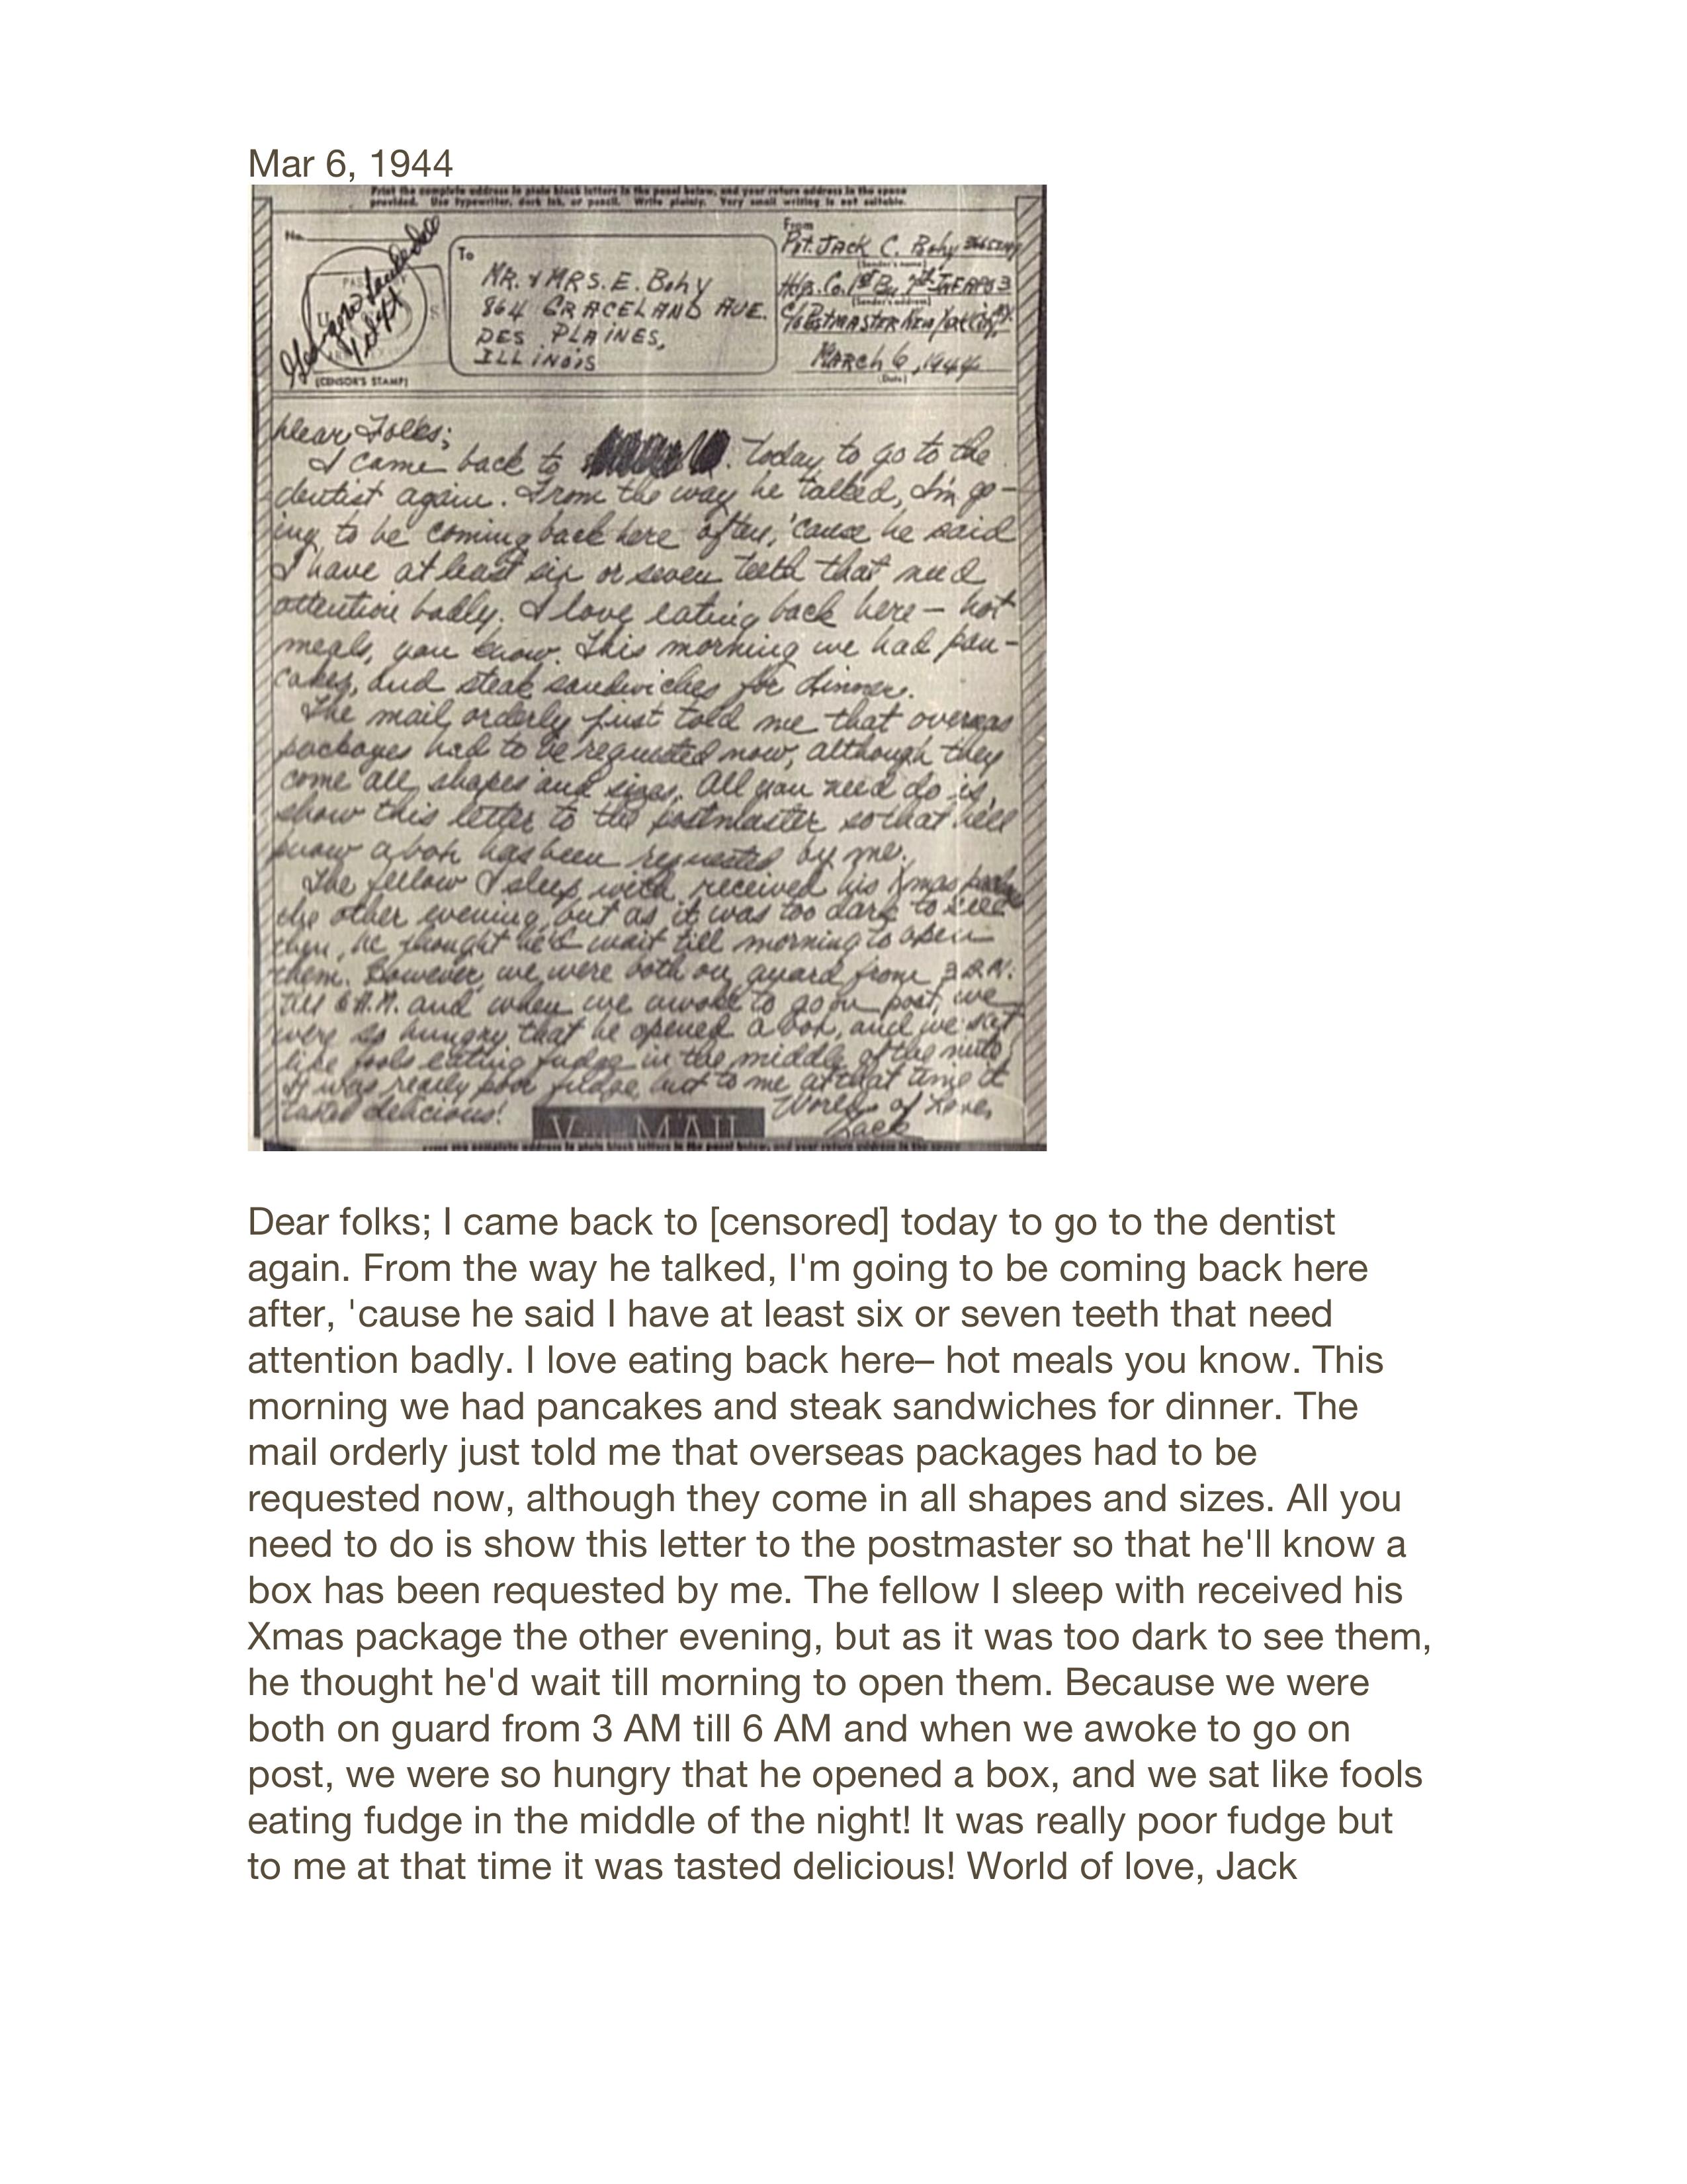 Mar 6, 1944
Print the complete address in plain block letters in the panel below, and your return address in the space
provided. Use typewriter, dark ink, or pencil. Write plainly. Very small writing is not suitable.
No.
(CENSOR'S STAMP)
To
MR. & MRS. E. Bohy
864 GRACELAND AVE.
DES PLAINES,
ILLINOIS
From
Pvt. JACK C. Bohy
(Sender's name)
Hdq. Co. 1st Bn. 7th INF APO 3
(Sender's address)
c/o POSTMASTER New York City, N.Y.
MARCH 6, 1944
(Date)
Dear Folks;
I came back to . today to go to the
dentist again. From the way he talked, I'm go-
ing to be coming back here often, 'cause he said
I have at least six or seven teeth that need
attention badly. I love eating back here – hot
meals, you know. This morning we had pan-
cakes, and steak sandwiches for dinner.
The mail orderly just told me that overseas
packages had to be requested now, although they
come all shapes and sizes. All you need do is,
show this letter to the postmaster so that he'll
know a box has been requested by me.
The fellow I sleep with received his Xmas
the other evening, but as it was too dark to see
them, he thought he'd wait till morning to open
them. However, we were both on guard from 3 A.M.
till 6 A.M. and when we awoke to go on post, we
were so hungry that he opened a box, and we sat
like fools eating fudge in the middle of the nite!
It was really poor fudge, but to me at that time it
tasted delicious!
Worlds of Love,
Jack
V MAIL
Dear folks; I came back to [censored] today to go to the dentist
again. From the way he talked, I'm going to be coming back here
after, 'cause he said I have at least six or seven teeth that need
attention badly. I love eating back here– hot meals you know. This
morning we had pancakes and steak sandwiches for dinner. The
mail orderly just told me that overseas packages had to be
requested now, although they come in all shapes and sizes. All you
need to do is show this letter to the postmaster so that he'll know a
box has been requested by me. The fellow I sleep with received his
Xmas package the other evening, but as it was too dark to see them,
he thought he'd wait till morning to open them. Because we were
both on guard from 3 AM till 6 AM and when we awoke to go on
post, we were so hungry that he opened a box, and we sat like fools
eating fudge in the middle of the night! It was really poor fudge but
to me at that time it was tasted delicious! World of love, Jack